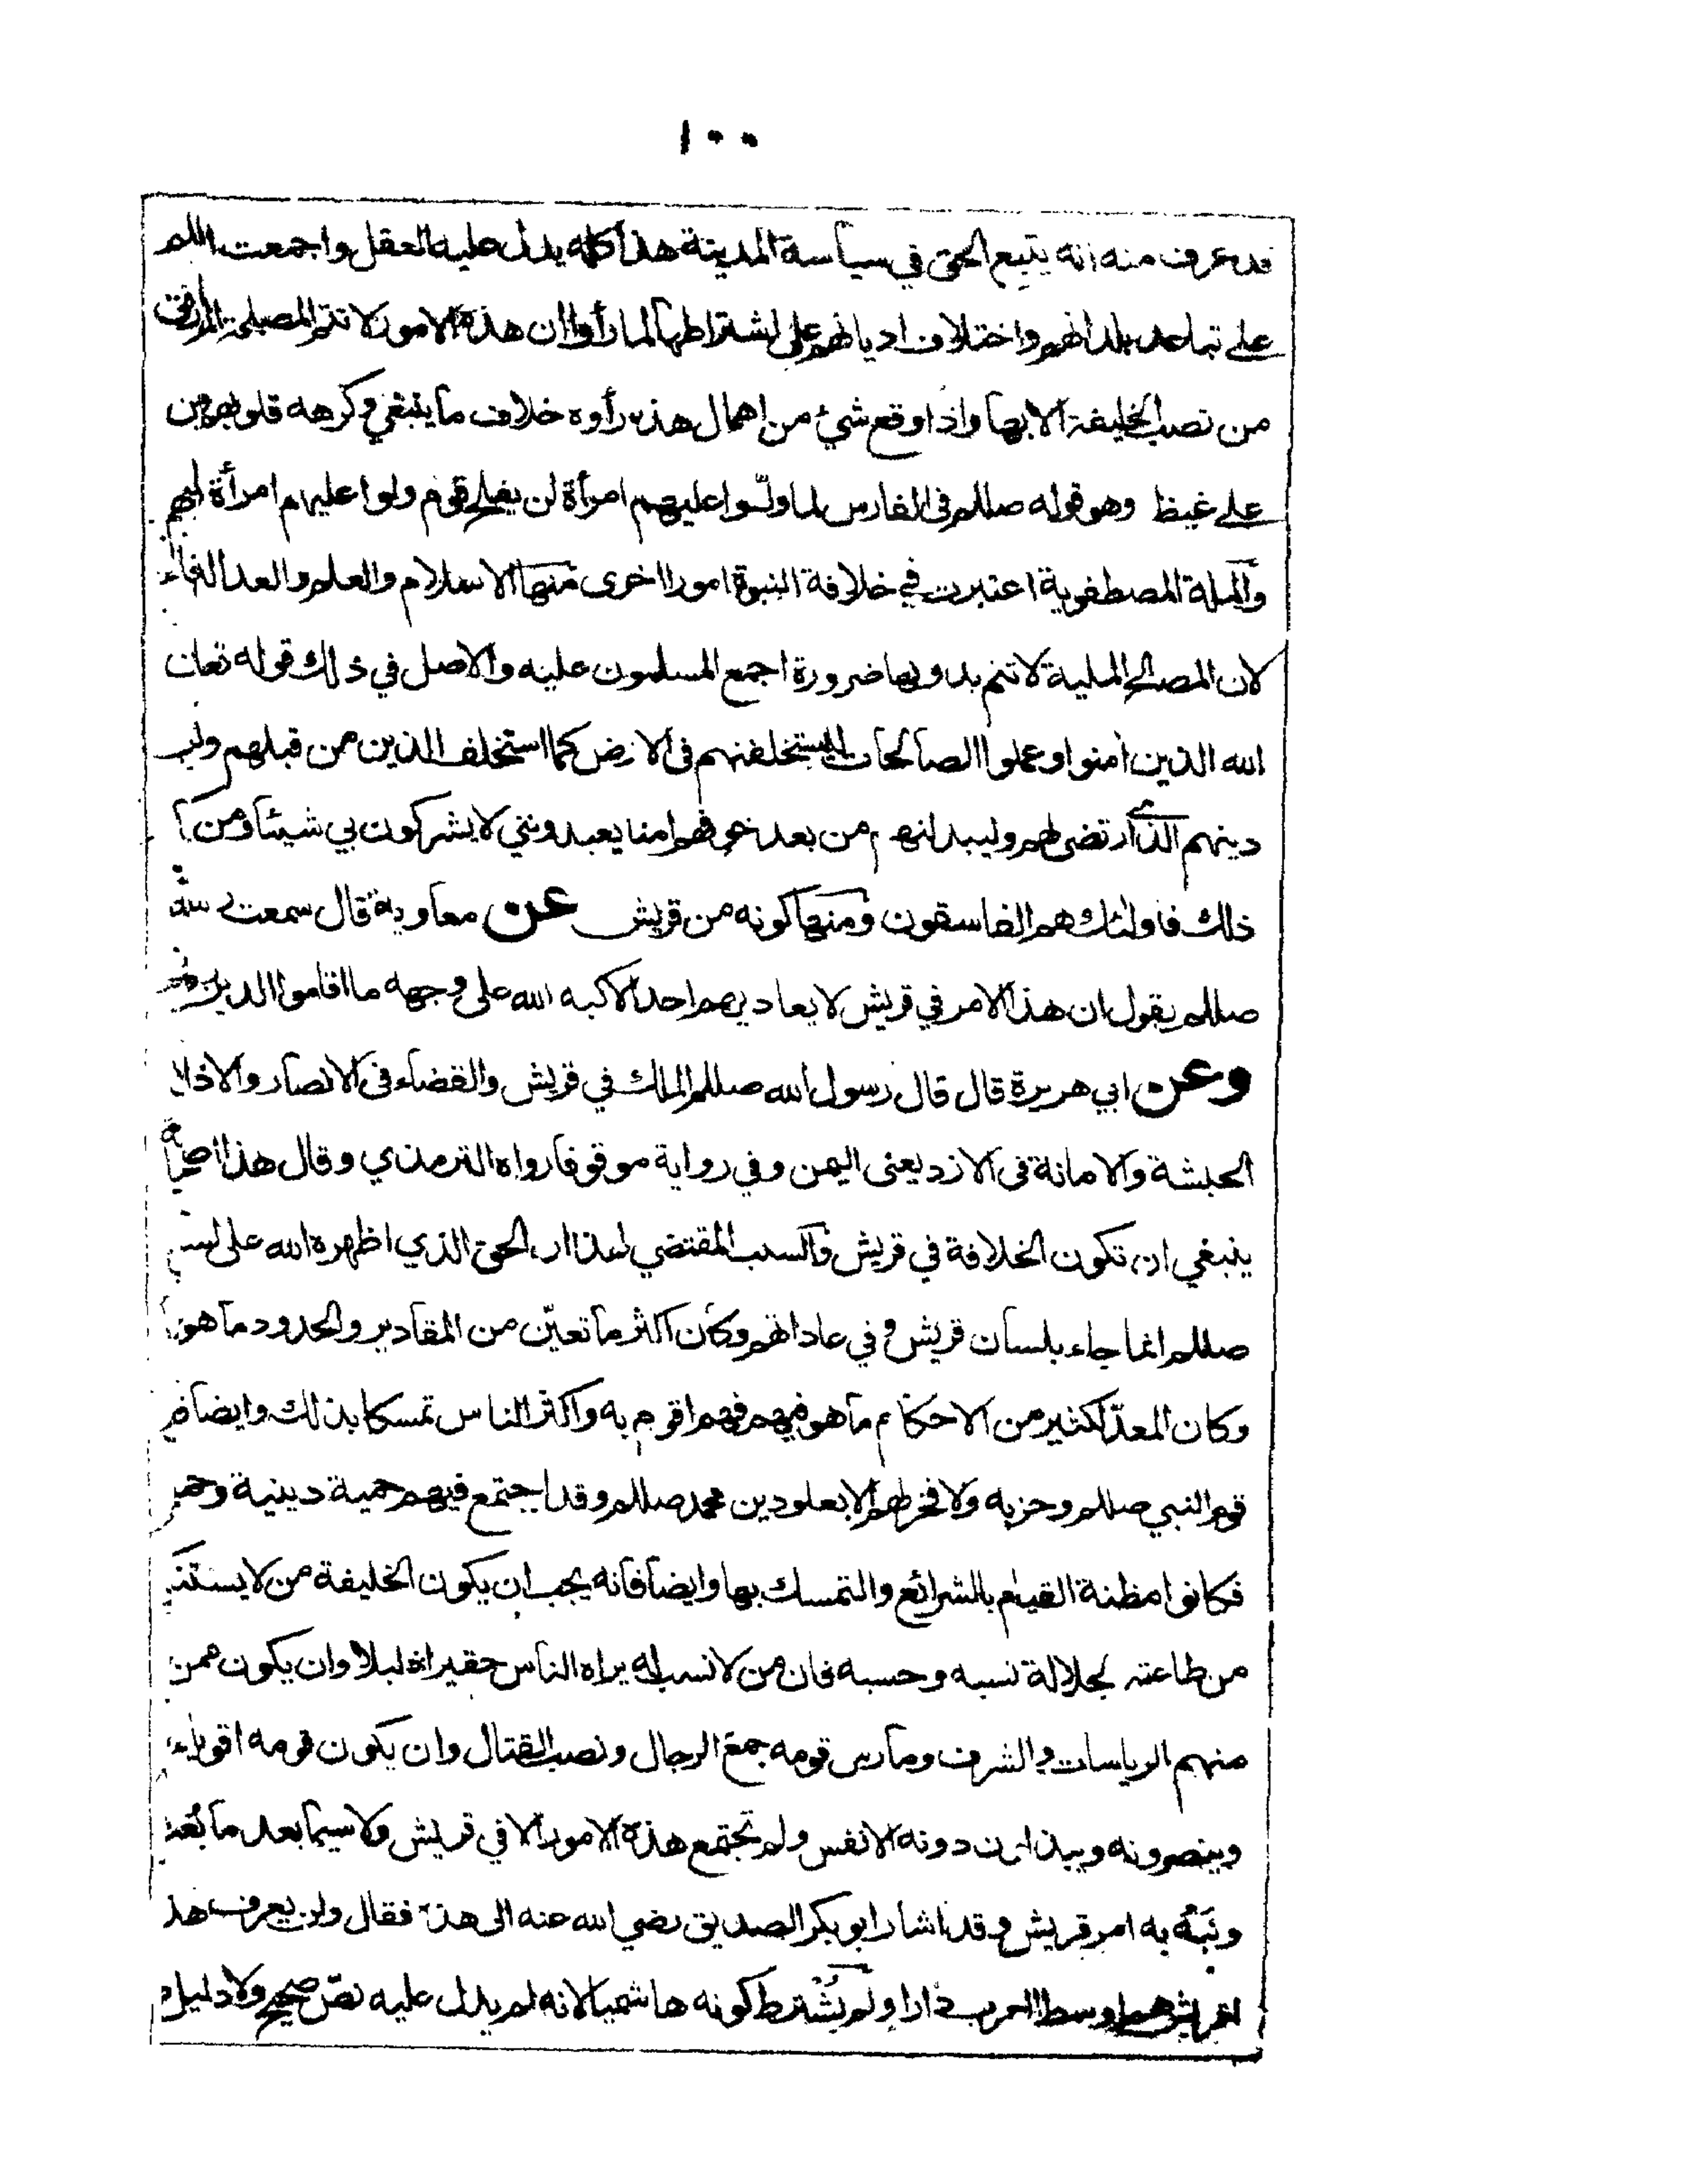 ١٠٠
قد عرف منه انه يتبع الحق في سياسة المدينة هذا كله يدل عليه العقل واجمعت امم
على تباعد بلدانهم واختلاف اديانهم على اشتراطها لما رأوا ان هذه الامور لا تتم المصلحة
من نصب الخليفة الا بها واذا وقع شيء من اهمال هذه رأوه خلاف ما ينبغي وكرهه قلوبهم
على غيظ وهو قوله صللم في الفارس لما ولّوا عليهم امرأة لن يفلح قوم ولوا عليهم امرأة
والملة المصطفوية اعتبرت في خلافة النبوة امورا اخرى منها الاسلام والعلم والعدالة
لان المصالح الملية لا تتم بدونها ضرورة اجمع المسلمون عليه والاصل في ذلك قوله تعا
الله الذين امنوا وعملوا الصالحات ليستخلفنهم في الارض كما استخلف الذين من قبلهم
دينهم الذي ارتضى لهم وليبدلنهم من بعد خوفهم امنا يعبدونني لا يشركون بي شيئا ومن
ذلك فاولئك هم الفاسقون ومنها كونه من قريش عن معاوية قال سمعت
صللم يقول ان هذا الامر في قريش لا يعاديهم احد الا كبه الله على وجهه ما اقاموا الدين
وعن ابي هريرة قال قال رسول الله صللم الملك في قريش والقضاء في الانصار والاذا
الحبشة والامانة في الازد يعني اليمن وفي رواية موقوفا رواه الترمذي وقال هذا اصح
ينبغي ان تكون الخلافة في قريش والسبب المقتضي لهذا ان الحق الذي اظهره الله على
صللم انما جاء بلسان قريش وفي عاداتهم وكان اكثر ما تعيّن من المقادير والحدود ما هو
وكان المعدّ لكثير من الاحكام ما هو فيهم فهم اقوم به واكثر الناس تمسكا بذلك وايضا
قوم النبي صللم وحزبه ولا فخر لهم الا بعلو دين محمد صللم وقد اجتمع فيهم حمية دينية
فكانوا مظنة القيام بالشرائع والتمسك بها وايضا فانه يجب ان يكون الخليفة من لا يستنكـ
من طاعته لجلالة نسبه وحسبه فان من لا نسب له يراه الناس حقيرا ذليلا وان يكون ممن
منهم الرياسات والشرف ومارس قومه جمع الرجال ونصب القتال وان يكون قومه اقوياء
وينصرونه ويبذلون دونه الانفس ولم تجتمع هذه الامور الا في قريش ولا سيما بعد ما بُعث
ونَبُه به امر قريش وقد اشار ابو بكر الصديق رضي الله عنه الى هذه فقال ولن يعرف هذ
لقريش هم اوسط العرب دارا ولم يُشترط كونه هاشميا لانه لم يدل عليه نصّ صحيح ولا دليل